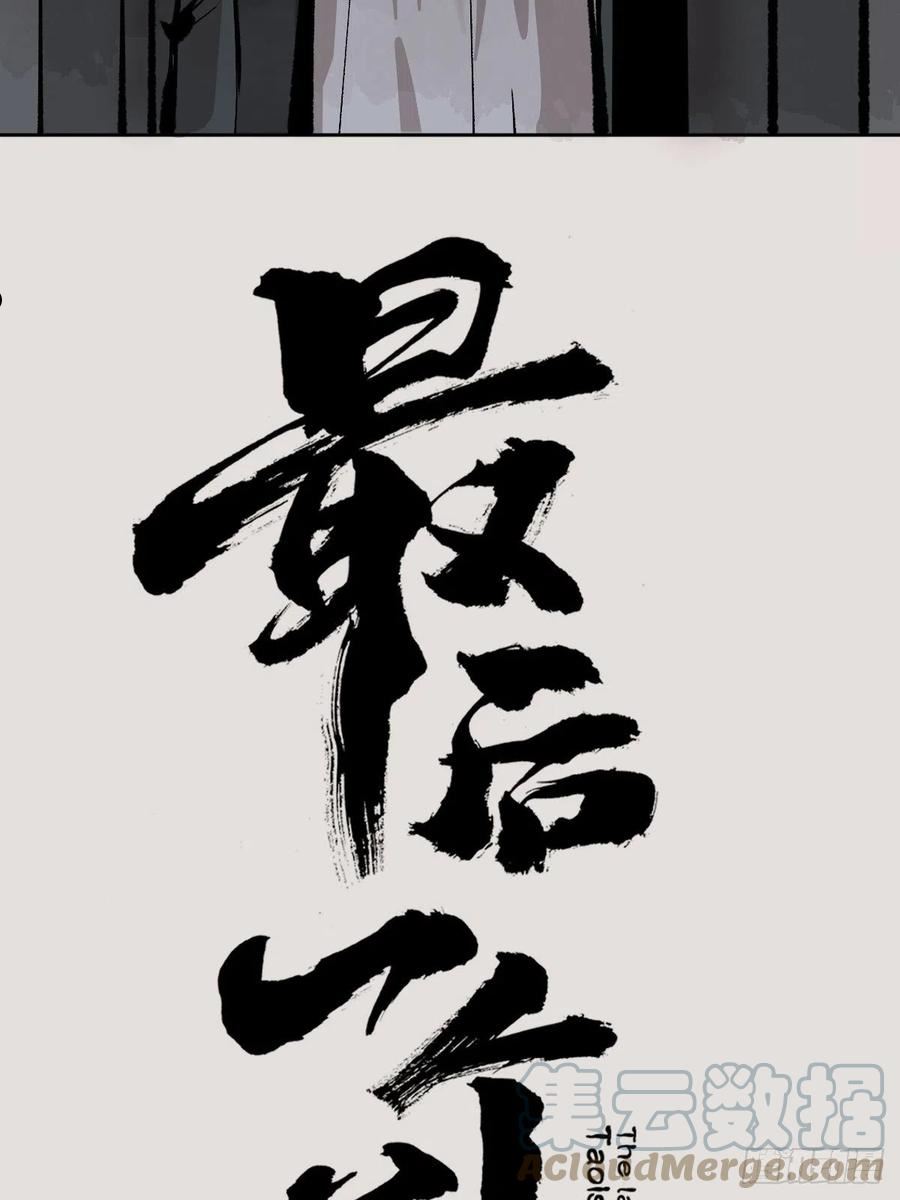 最
后
The la
Taois
集云数据
AcloudMerge.com